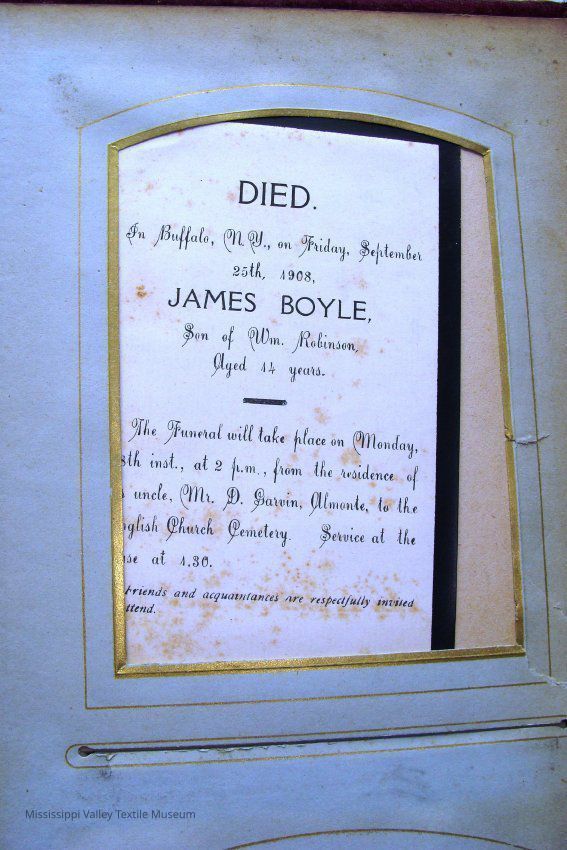 DIED.
In Buffalo, N.Y., on Friday, September
25th, 1908,
JAMES BOYLE,
Son of Wm. Robinson,
Aged 14 years.
The Funeral will take place on Monday,
8th inst., at 2 p.m., from the residence of
s uncle, Mr. D. Garvin, Almonte, to the
nglish Church Cemetery. Service at the
se at 1.30.
Friends and acquaintances are respectfully invited
ttend.
Mississippi Valley Textile Museum